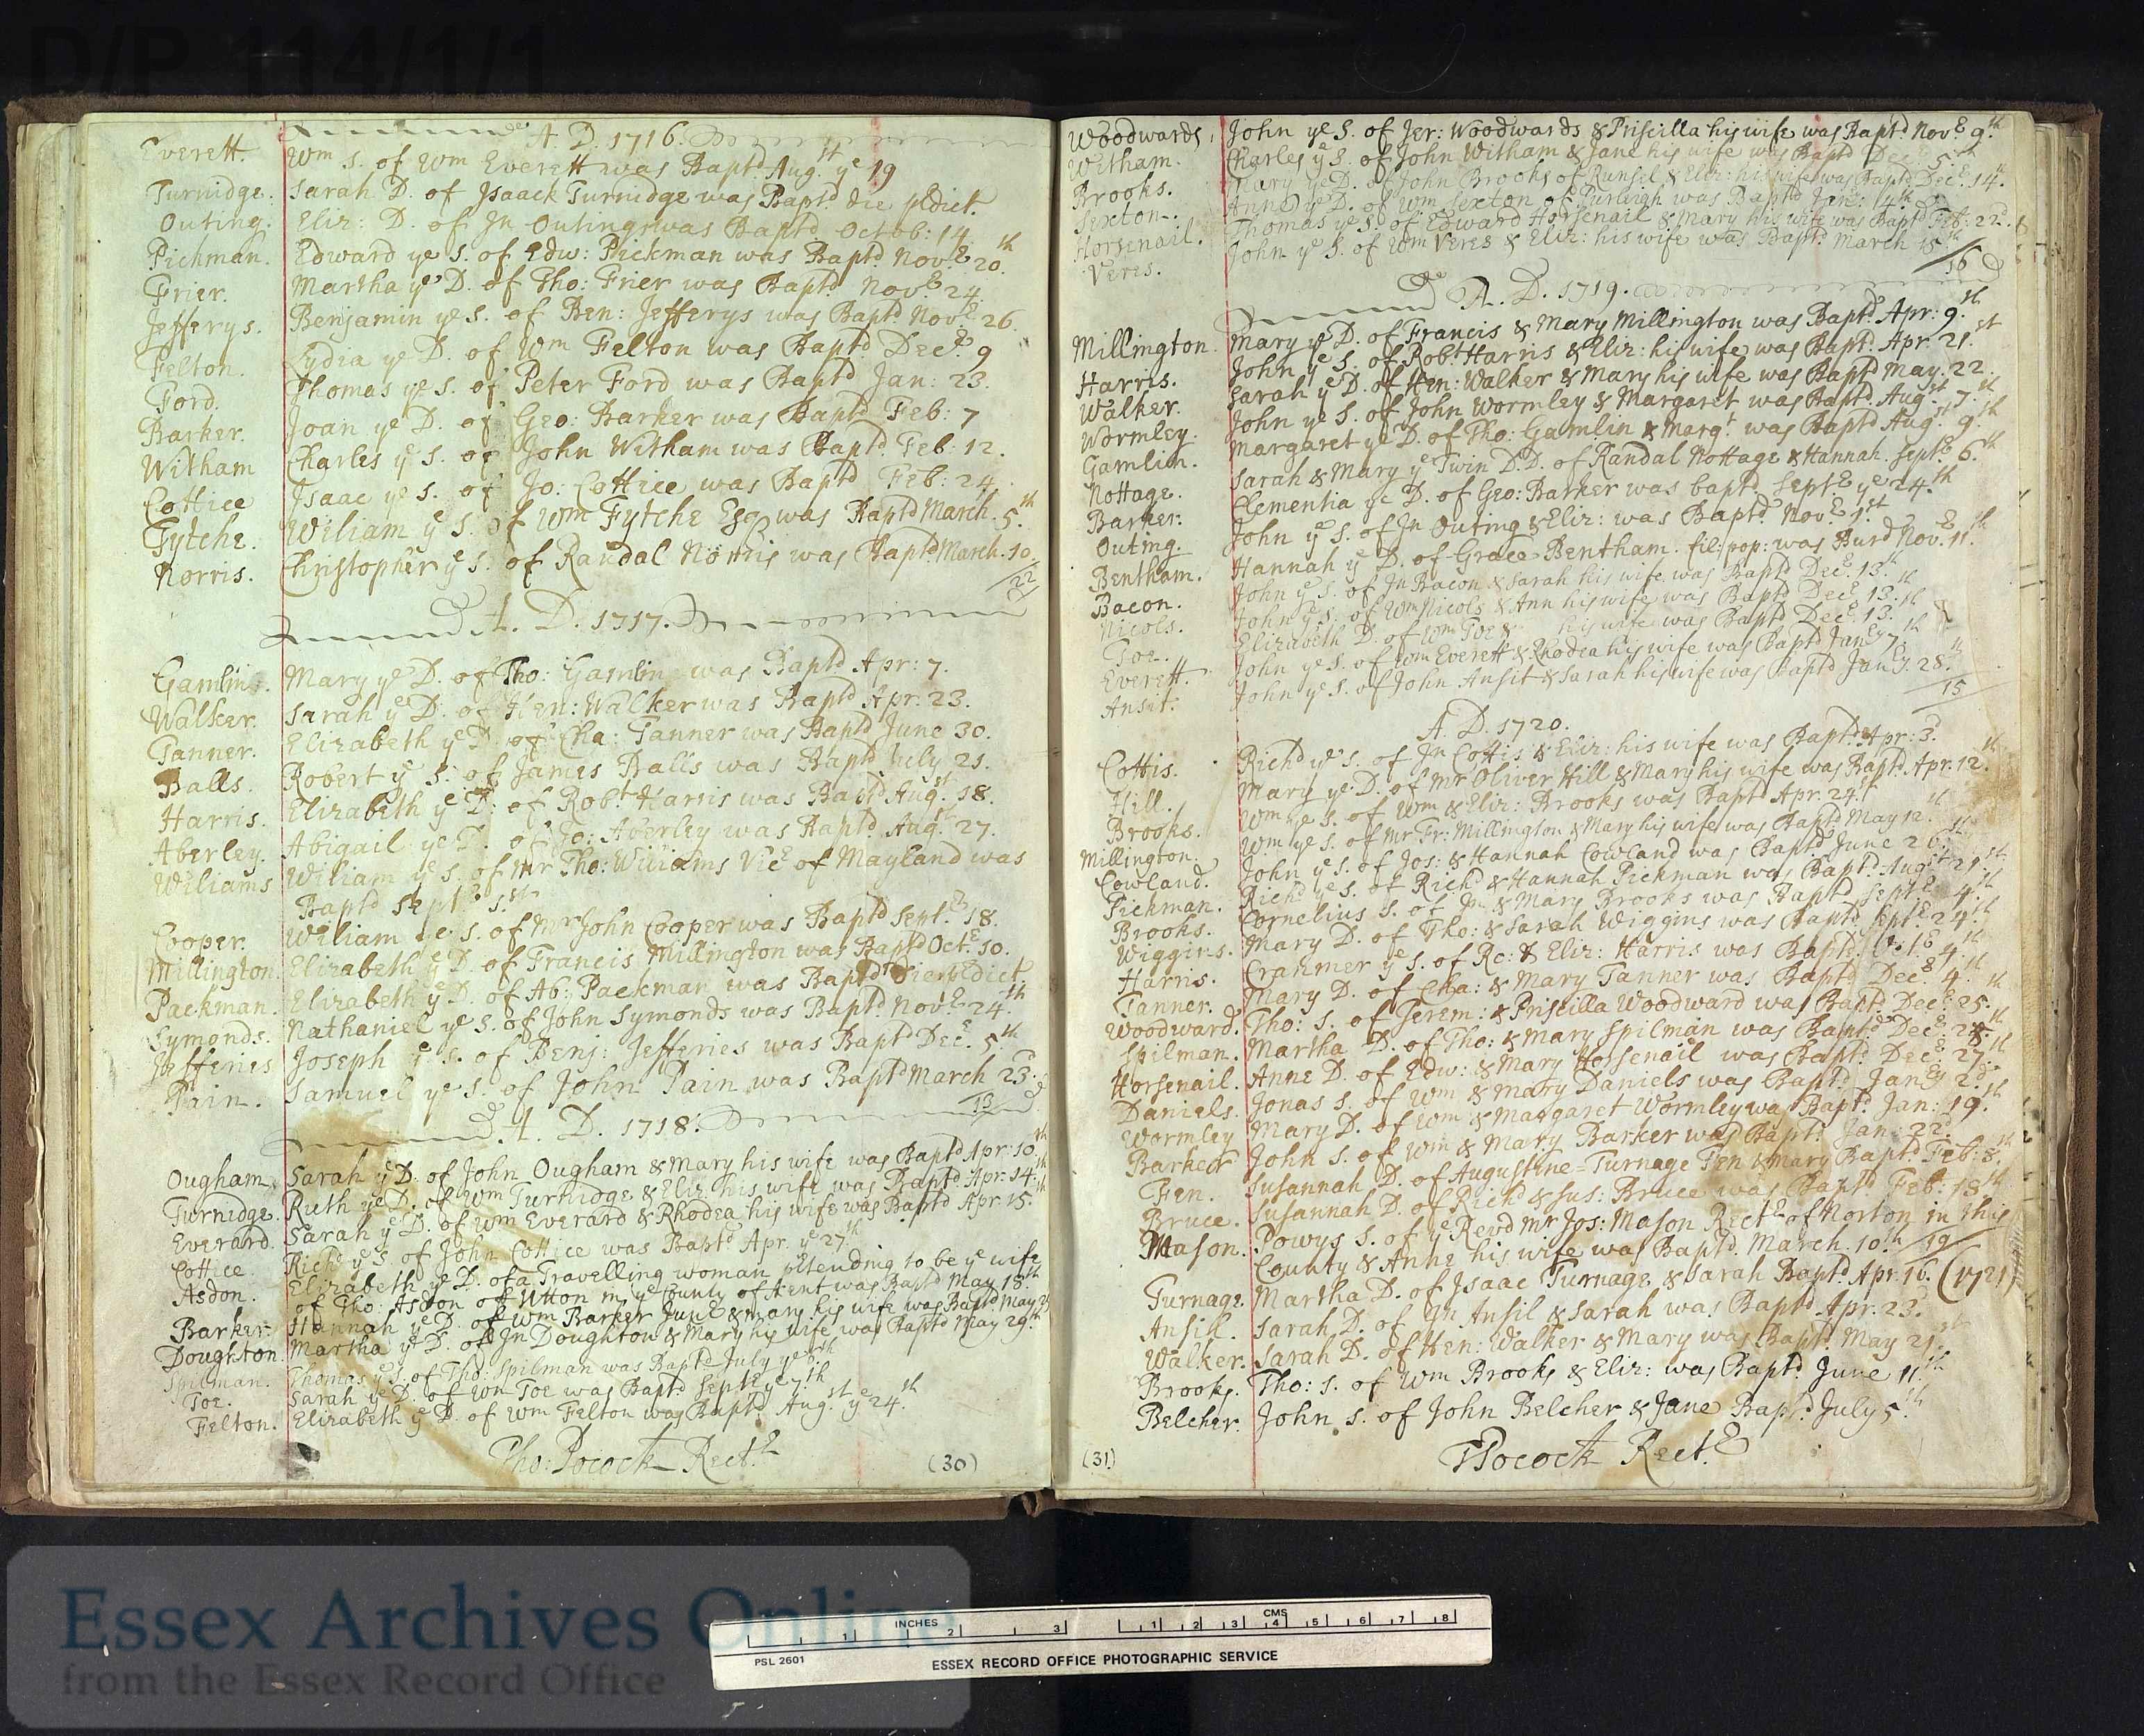 D/P 114/1/1
A. D. 1716.
Everett. Wm S. of Wm Everett was Baptd Aug.st ye 19
Turnidge. Sarah D. of Isaack Turnidge was Baptd die pdict.
Outing. Eliz: D. of Jn Outing was Baptd Octob: 14.
Pichman. Edward ye S. of Edw: Pickman was Baptd Novr 20th
Frier. Martha ye D. of Tho: Frier was Baptd Novr 24.
Jefferys. Benjamin ye S. of Ben: Jefferys was Baptd Novr 26.
Felton. Lydia ye D. of Wm Felton was Baptd Decr 9
Ford. Thomas ye S. of Peter Ford was Baptd Jan: 23.
Barker. Joan ye D. of Geo: Barker was Baptd Feb: 7
Witham Charles ye S. of John Witham was Baptd Feb: 12.
Cottice Isaac ye S. of Jo: Cottice was Baptd Feb: 24.
Fytche. William ye S. of Wm Fytche Esqr was Baptd March 5th
Norris. Christopher ye S. of Randal Norris was Baptd March. 10
A. D. 1717.
Gamlin. Mary ye D. of Tho: Gamlin was Baptd Apr: 7.
Walker. Sarah ye D. of Hen: Walker was Baptd Apr. 23.
Tanner. Elizabeth ye D. of Cha: Tanner was Baptd June 30.
Balls. Robert ye S. of James Balls was Baptd July 21.
Harris. Elizabeth ye D. of Robt Harris was Baptd Augst 18.
Aberley. Abigail ye D. of Jo: Aberley was Baptd Augst 27.
Wiliams Wiliam ye S. of Mr Tho: Wiliams Vicr of Mayland was
Baptd Septr 1st
Cooper. Wiliam ye S. of Mr John Cooper was Baptd Septr 18.
Millington. Elizabeth ye D. of Francis Millington was Baptd Octr 10.
Packman. Elizabeth ye D. of Ab: Packman was Baptd Die pdict
Symonds. Nathaniel ye S. of John Symonds was Baptd Novr 24th
Jefferies Joseph ye S. of Benj: Jefferies was Baptd Decr 5th
Pain. Samuel ye S. of John Pain was Baptd March 23d
13
A. D. 1718.
Ougham. Sarah ye D. of John Ougham & Mary his wife was Baptd Apr: 10th
Turnidge. Ruth ye D. of Wm Turnidge & Eliz: his wife was Baptd Apr. 14th
Everard. Sarah ye D. of Wm Everard & Rhodea his wife was Baptd Apr. 15th
Cottice. Richd ye S. of John Cottice was Baptd Apr. ye 27th
Asdon. Elizabeth ye D. of a Travelling woman ptending to be ye wife
of Tho: Asdon of Utton in ye County of Kent was Baptd May 18th
Barker. Hannah ye D. of Wm Barker Junr & Mary his wife was Baptd May
Doughton. Martha ye D. of Jn Doughton & Mary his wife was Baptd May 29th
Spilman. Thomas ye S. of Tho: Spilman was Baptd July ye
Toe. Sarah ye D. of Wm Toe was Baptd Septr ye 7th
Felton. Elizabeth ye D. of Wm Felton was Baptd Aug.st ye 24th
Tho: Pocock Rectr
(30)
Woodwards, John ye S. of Jer: Woodwards & Priscilla his wife was Baptd Novr 9th
Witham. Charles ye S. of John Witham & Jane his wife was Baptd Decr 5th
Brooks. Mary ye D. of John Brooks of Runsel & Eliz: his wife was Baptd Decr 14th
Sexton. Anne ye D. of Wm Sexton of Purleigh was Baptd Jan: 4th
Horsenail. Thomas ye S. of Edward Horsenail & Mary his wife was Baptd Feb: 22d
Veres. John ye S. of Wm Veres & Eliz: his wife was Baptd March 15th
16
A. D. 1719.
Millington. Mary ye D. of Francis & Mary Millington was Baptd Apr: 9th
Harris. John ye S. of Robt Harris & Eliz: his wife was Baptd Apr. 21st
Walker. Sarah ye D. of Hen: Walker & Mary his wife was Baptd May. 22.
Wormley. John ye S. of John Wormley & Margaret was Baptd Augst 7th
Gamlin. Margaret ye D. of Tho: Gamlin & Margt was Baptd Augst 9th
Nottage. Sarah & Mary ye Twin D.D. of Randal Nottage & Hannah. Septr 6th
Barker. Clementia ye D. of Geo: Barker was baptd Septr ye 24th
Outing. John ye S. of Jn Outing & Eliz: was Baptd Novr 1st
Bentham. Hannah ye D. of Grace Bentham. fil: pop: was Burd Novr 11th
Bacon. John ye S. of Jn Bacon & Sarah his wife was Baptd Decr 13th
Nicols. John ye S. of Wm Nicols & Ann his wife was Baptd Decr 13th
Toe. Elizabeth D. of Wm Toe & his wife was Baptd Decr 13.
Everett. John ye S. of Wm Everett & Rhodea his wife was Baptd Janry 7th
Ansit. John ye S. of John Ansit & Sarah his wife was Baptd Janry 28th
15
A. D. 1720.
Cottis. Richd ye S. of Jn Cottis & Eliz: his wife was Baptd Apr: 3.
Hill. Mary ye D. of Mr Oliver Hill & Mary his wife was Baptd Apr. 12th
Brooks. Wm ye S. of Wm & Eliz: Brooks was Baptd Apr. 24th
Millington. Wm ye S. of Mr Fr: Millington & Mary his wife was Baptd May 12th
Cowland. John ye S. of Jos: & Hannah Cowland was Baptd June 26th
Pickman. Richd ye S. of Richd & Hannah Pickman was Baptd Augst 21st
Brooks. Cornelius S. of Jn & Mary Brooks was Baptd Septr 4th
Wiggins. Mary D. of Tho: & Sarah Wiggins was Baptd Septr 24th
Harris. Cranmer ye S. of Ro: & Eliz: Harris was Baptd
Tanner. Mary D. of Cha: & Mary Tanner was Baptd Decr 4th
Woodward. Tho: S. of Jerem: & Priscilla Woodward was Baptd Decr 25th
Spilman. Martha D. of Tho: & Mary Spilman was Baptd Decr
Horsenail. Anne D. of Edw: & Mary Horsenail was Baptd Decr 27th
Daniels. Jonas S. of Wm & Mary Daniels was Baptd Janry 2d
Wormley Mary D. of Wm & Margaret Wormley was Baptd Jan: 19th
Barker John S. of Wm & Mary Barker was Baptd Jan: 22d
Fen. Susannah D. of Augustine=Turnage Fen & Mary Baptd Feb: 8th
Bruce. Susannah D. of Richd & Sus: Bruce was Baptd Feb: 18th
Mason. Powys S. of ye Revd Mr Jos: Mason Rectr of Norton in this
County & Anne his wife was Baptd March. 10th 19
Turnage. Martha D. of Isaac Turnage & Sarah Baptd Apr. 16. (1721)
Ansil. Sarah D. of Jn Ansil & Sarah was Baptd Apr. 23d
Walker. Sarah D. of Hen: Walker & Mary was Baptd May 21st
Brooks. Tho: S. of Wm Brooks & Eliz: was Baptd June 11th
Belcher. John S. of John Belcher & Jane Baptd July 5th
TPocock Rectr
(31)
Essex Archives Online
from the Essex Record Office
INCHES 1 2 3 CMS 1 2 3 4 5 6 7 8
PSL 2601 ESSEX RECORD OFFICE PHOTOGRAPHIC SERVICE